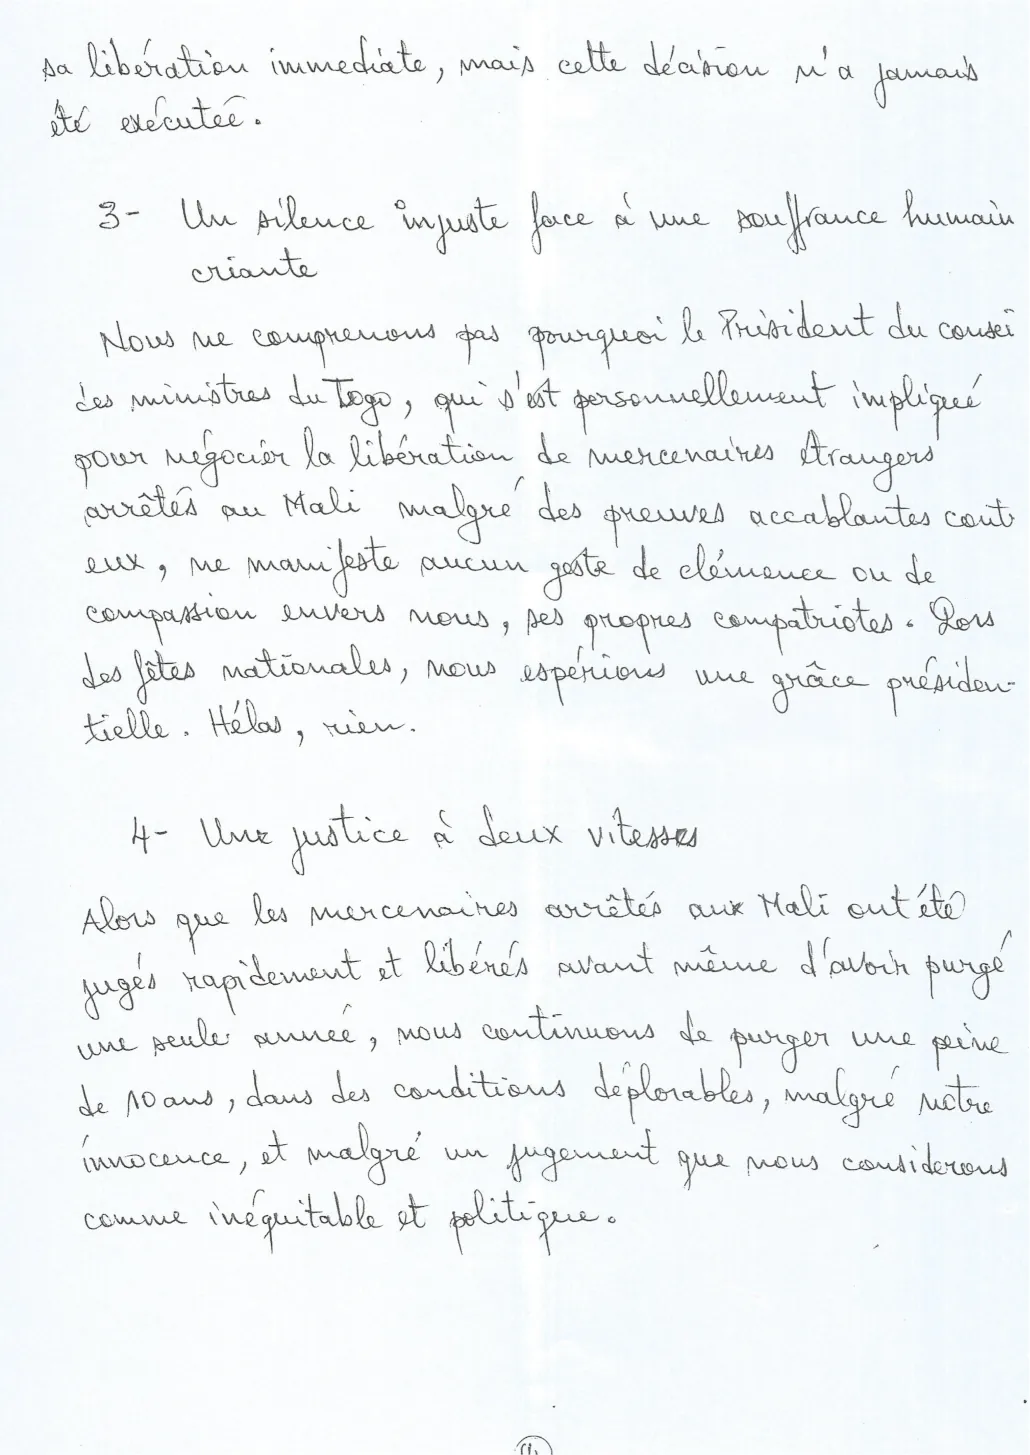 sa libération immediate, mais cette décision n'a jamais
été exécutée.
3- Un silence injuste face à une souffrance humain
criante
Nous ne comprenons pas pourquoi le Président du consei
des ministres du Togo, qui s'est personnellement impliqué
pour négocier la libération de mercenaires étrangers
arrêtés au Mali malgré des preuves accablantes cont
eux, ne manifeste aucun geste de clémence ou de
compassion envers nous, ses propres compatriotes. Lors
des fêtes nationales, nous espérions une grâce présiden-
tielle. Hélas, rien.
4- Une justice à deux vitesses
Alors que les mercenaires arrêtés aux Mali ont été
jugés rapidement et libérés avant même d'avoir purgé
une seule année, nous continuons de purger une peine
de 10 ans, dans des conditions déplorables, malgré notre
innocence, et malgré un jugement que nous considerons
comme inéquitable et politique.